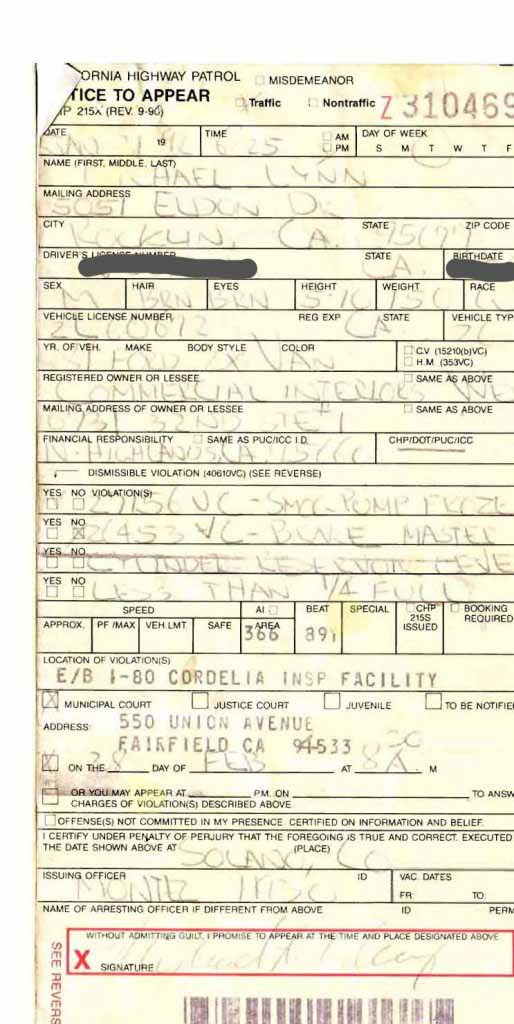 ORNIA HIGHWAY PATROL MISDEMEANOR
TICE TO APPEAR Traffic Nontraffic Z 310469
P 215X (REV. 9-90)
DATE 19 TIME 6 25 AM PM DAY OF WEEK
S M T W T F
NAME (FIRST, MIDDLE, LAST)
LYNN
MAILING ADDRESS
5051 ELDON DR
CITY STATE ZIP CODE
ROCKLIN, CA.
DRIVER'S LICENSE NUMBER STATE BIRTHDATE
CA.
SEX HAIR EYES HEIGHT WEIGHT RACE
M BRN BRN
VEHICLE LICENSE NUMBER REG EXP STATE VEHICLE TYP
CA
YR. OF VEH. MAKE BODY STYLE COLOR C.V (15210(b)VC)
H.M (353VC)
VAN
REGISTERED OWNER OR LESSEE SAME AS ABOVE
COMMERCIAL INTERIORS WE
MAILING ADDRESS OF OWNER OR LESSEE SAME AS ABOVE
32ND STE #1
FINANCIAL RESPONSIBILITY SAME AS PUC/ICC I.D. CHP/DOT/PUC/ICC
N. HIGHLANDS, CA
DISMISSIBLE VIOLATION (40610VC) (SEE REVERSE)
YES NO VIOLATION(S)
27156 VC - SMOG PUMP
YES NO
26453 VC - BRAKE MASTER
YES NO
CYLINDER RESERVOIR LEVE
YES NO
LESS THAN 1/4 FULL
SPEED AI BEAT SPECIAL CHP 215S ISSUED BOOKING REQUIRED
APPROX. PF /MAX VEH.LMT SAFE AREA
366 891
LOCATION OF VIOLATION(S)
E/B I-80 CORDELIA INSP FACILITY
MUNICIPAL COURT JUSTICE COURT JUVENILE TO BE NOTIFIE
ADDRESS: 550 UNION AVENUE
FAIRFIELD CA 94533
ON THE 28 DAY OF FEB AT 8 30 A. M
OR YOU MAY APPEAR AT P.M. ON TO ANSW
CHARGES OF VIOLATION(S) DESCRIBED ABOVE
OFFENSE(S) NOT COMMITTED IN MY PRESENCE CERTIFIED ON INFORMATION AND BELIEF.
I CERTIFY UNDER PENALTY OF PERJURY THAT THE FOREGOING IS TRUE AND CORRECT. EXECUTED
THE DATE SHOWN ABOVE AT (PLACE)
SOLANO, CO
ISSUING OFFICER ID VAC. DATES
FR: TO:
NAME OF ARRESTING OFFICER IF DIFFERENT FROM ABOVE ID PERM
WITHOUT ADMITTING GUILT, I PROMISE TO APPEAR AT THE TIME AND PLACE DESIGNATED ABOVE
X SIGNATURE
SEE REVERS